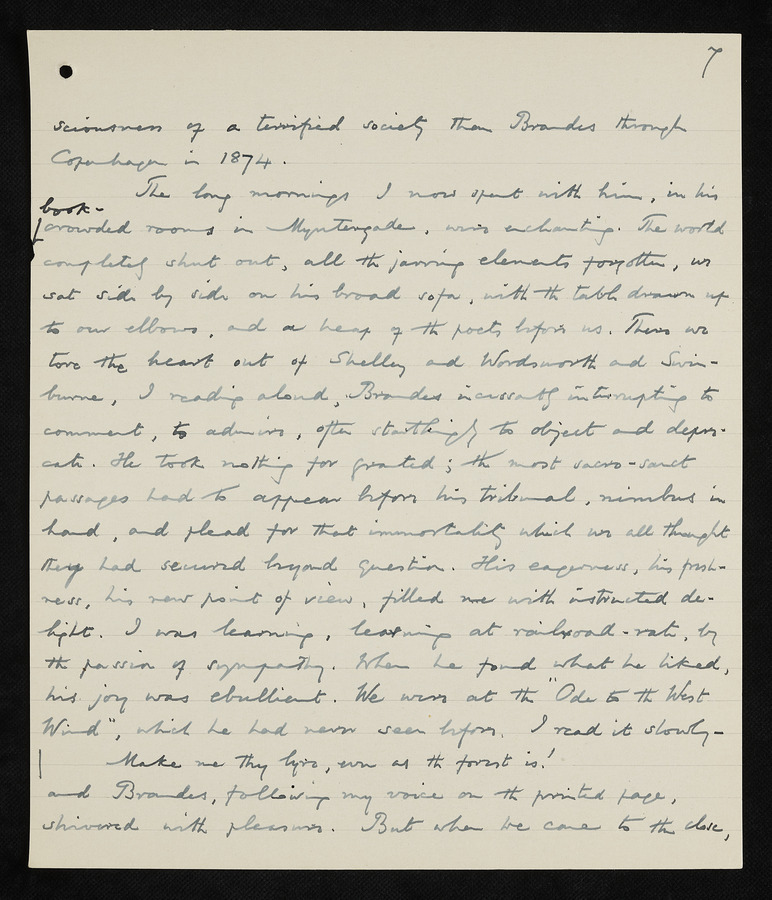 7
sciousness of a terrified society than Brandes through
Copenhagen in 1874.
The long mornings I now spent with him, in his
book-
crowded rooms in Myntergade, were enchanting. The world
completely shut out, all the jarring elements forgotten, we
sat side by side on his broad sofa, with the table drawn up
to our elbows, and a heap of the poets before us. There we
tore the heart out of Shelley and Wordsworth and Swin-
burne, I reading aloud, Brandes incessantly interrupting to
comment, to admire, often startlingly to object and depre-
cate. He took nothing for granted; the most sacro-sanct
passages had to appear before his tribunal, nimbus in
hand, and plead for that immortality which we all thought
they had secured beyond question. His eagerness, his fresh-
ness, his new point of view, filled me with instructed de-
light. I was learning, learning at railroad-rate, by
the passion of sympathy. When he found what he liked,
his joy was ebullient. We were at the "Ode to the West
Wind", which he had never seen before. I read it slowly-
Make me thy lyre, even as the forest is!
and Brandes, following my voice on the printed page,
shivered with pleasure. But when we came to the close,